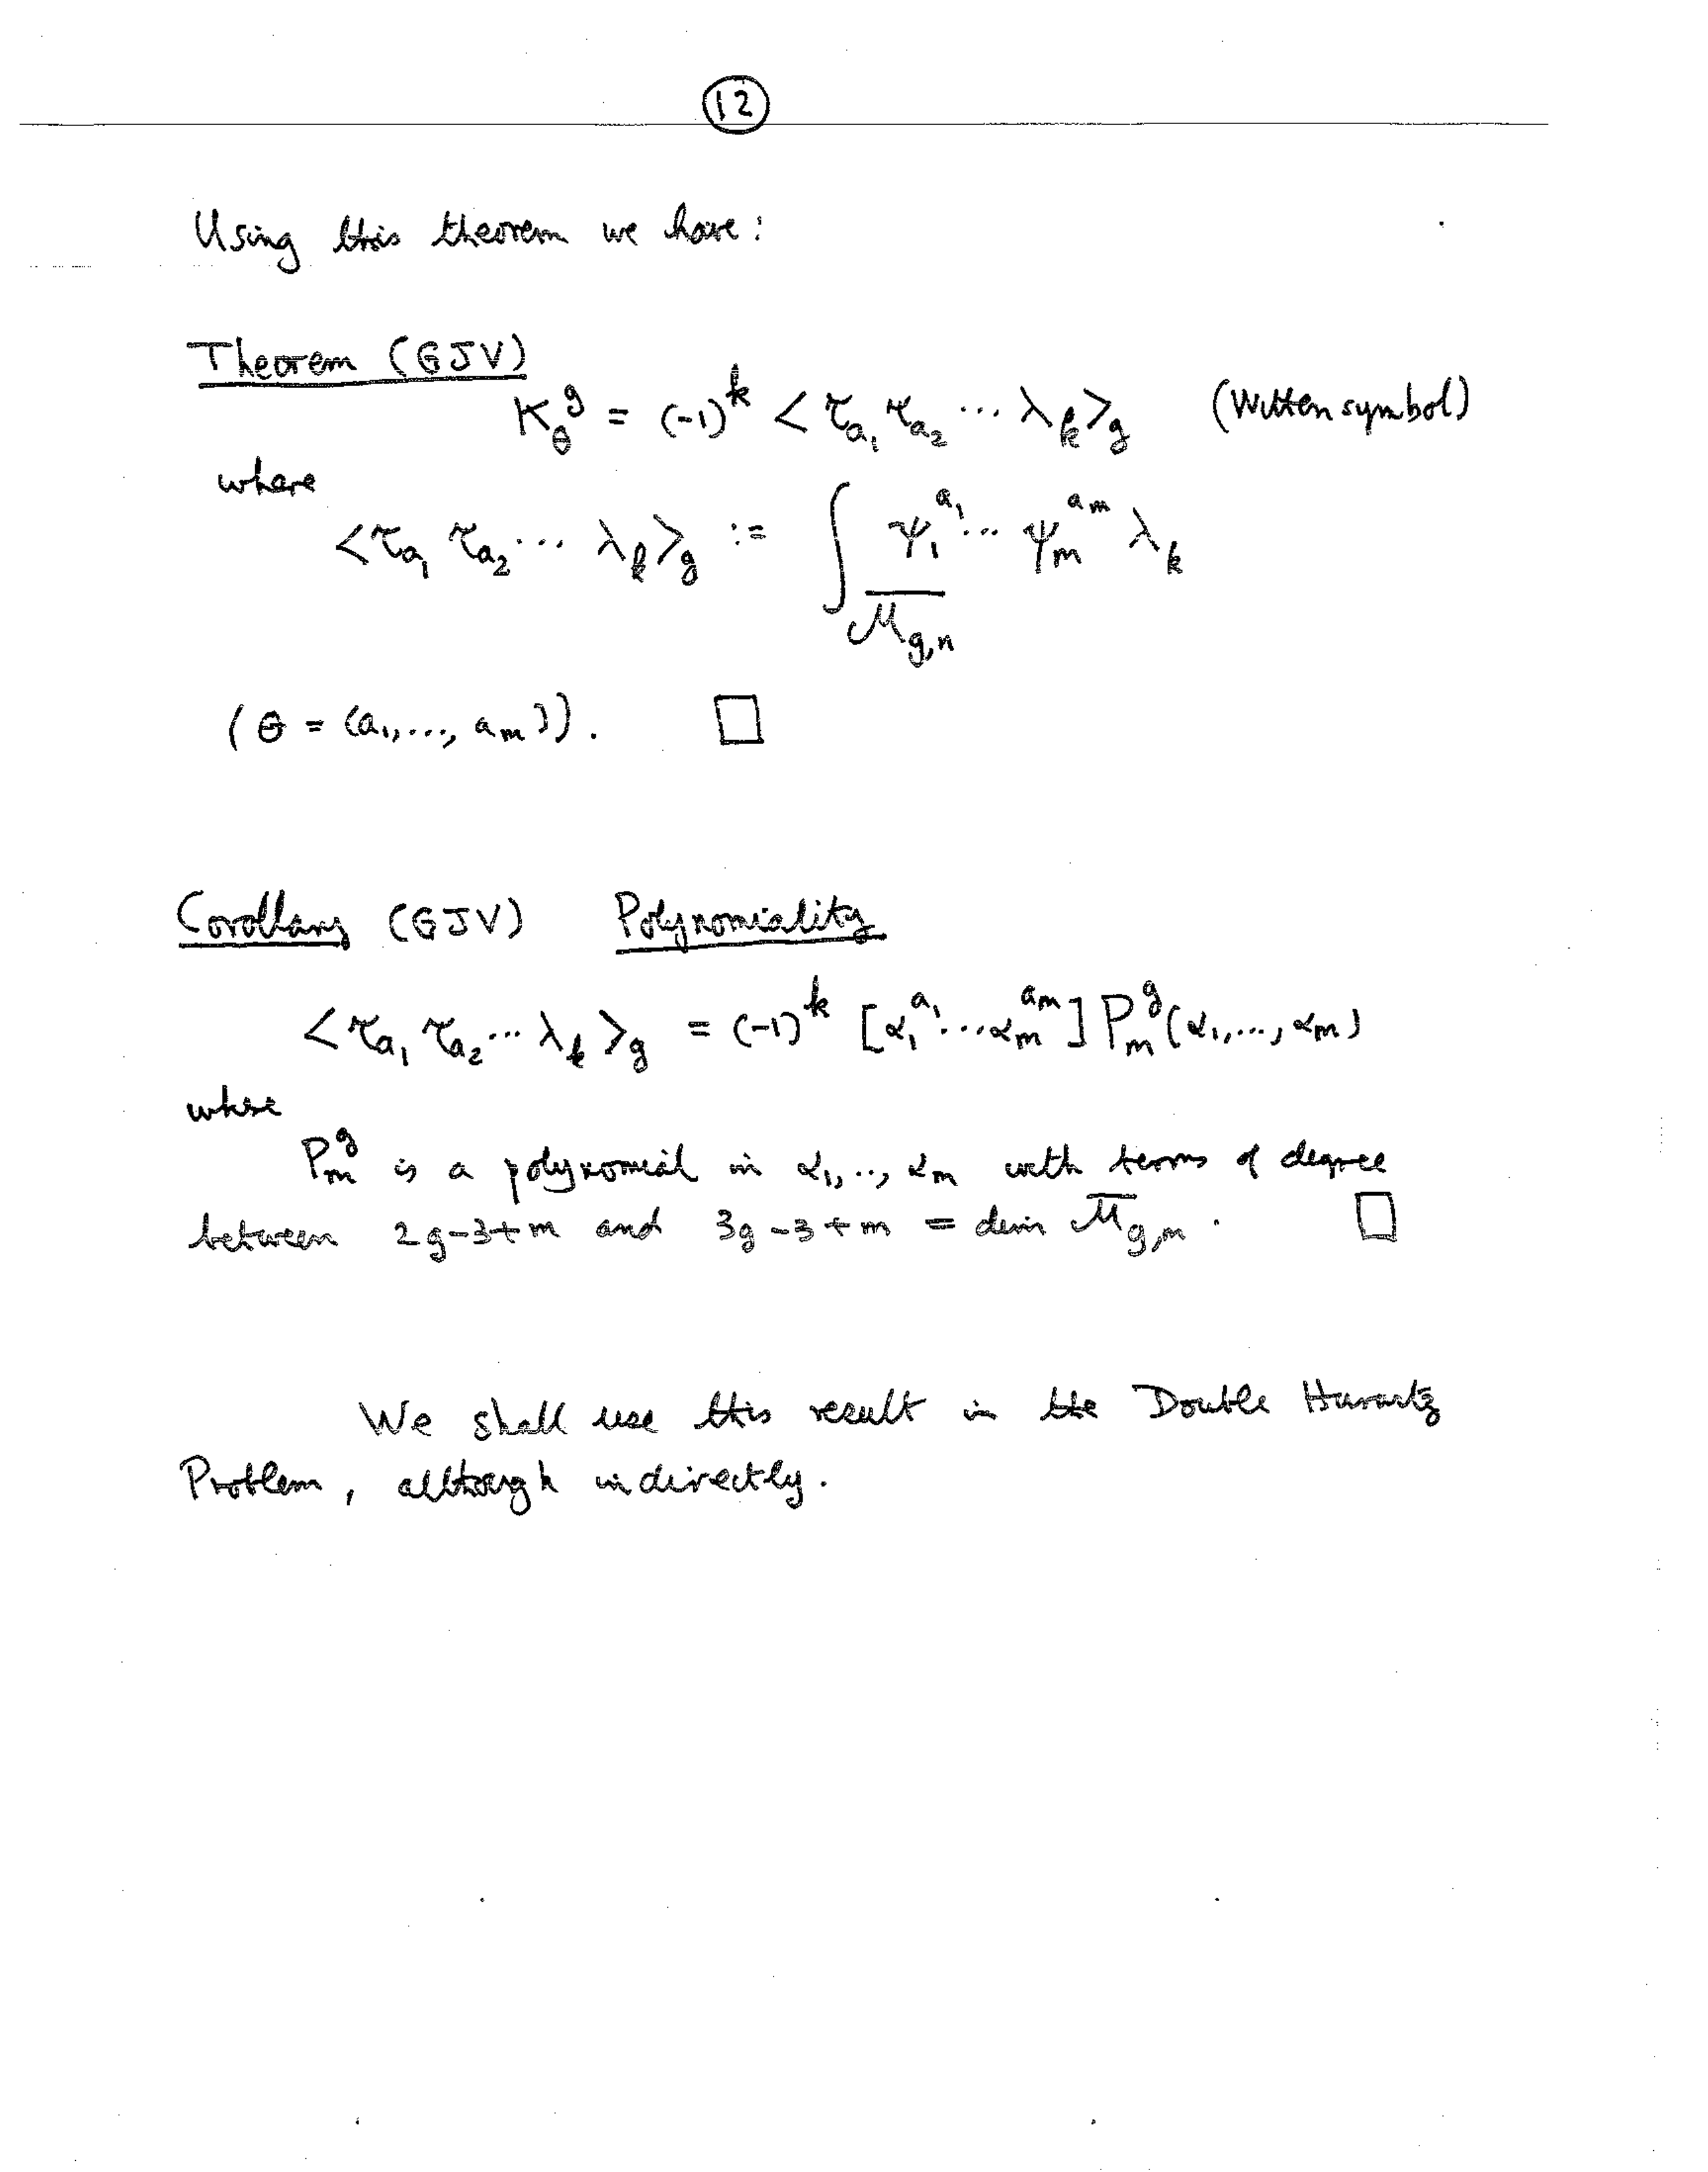 12
Using this theorem we have:
Theorem (GJV)
K_θ^g = (-1)^k <τ_{a_1} τ_{a_2} ⋯ λ_k>_g (Witten symbol)
where
<τ_{a_1} τ_{a_2} ⋯ λ_k>_g := ∫_{\overline{M}_{g,n}} ψ_1^{a_1} ⋯ ψ_m^{a_m} λ_k
(θ = (a_1, ..., a_m)). □
Corollary (GJV) Polynomiality
<τ_{a_1} τ_{a_2} ⋯ λ_k>_g = (-1)^k [α_1^{a_1} ⋯ α_m^{a_m}] P_m^g (α_1, ..., α_m)
where
P_m^g is a polynomial in α_1, .., α_m with terms of degree
between 2g-3+m and 3g-3+m = dim \overline{M}_{g,m}. □
We shall use this result in the Double Hurwitz
Problem, although indirectly.